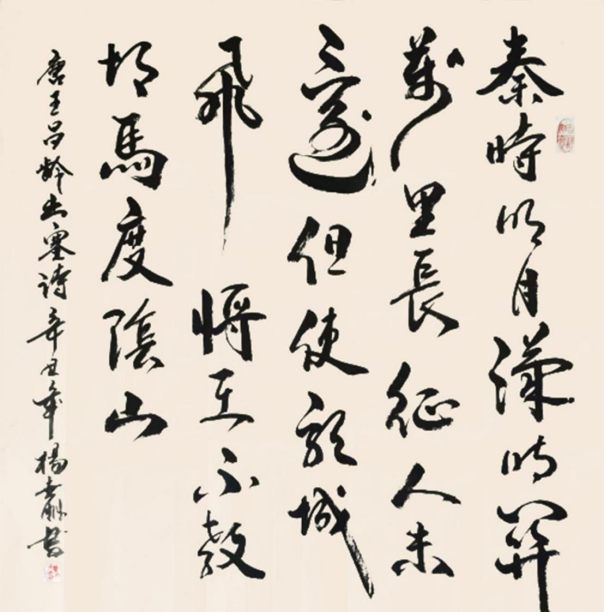 秦時明月漢時關
萬里長征人未
還但使龍城
飛將在不教
胡馬度陰山
唐王昌齡出塞詩辛丑年楊書